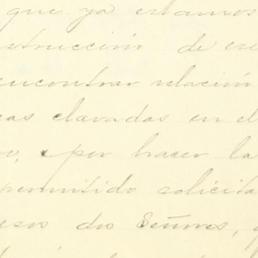 que ya estamos
strucción de es
encontrar relación
cas clavadas en el
o, por hacer la
permitido solicita
esos dos Señores,